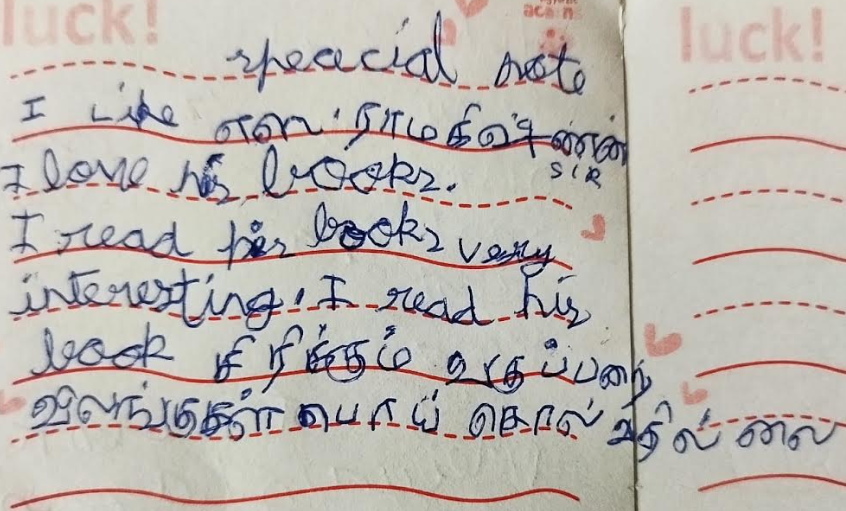 luck!
luck!
speacial note
I Like எஸ். ராமகிருஷ்ணன்
SIR
I love his books.
I read his books very
interesting. I read his
book சிரிக்கும் வகுப்பறை
விலங்குகள் பொய் சொல்வதில்லை